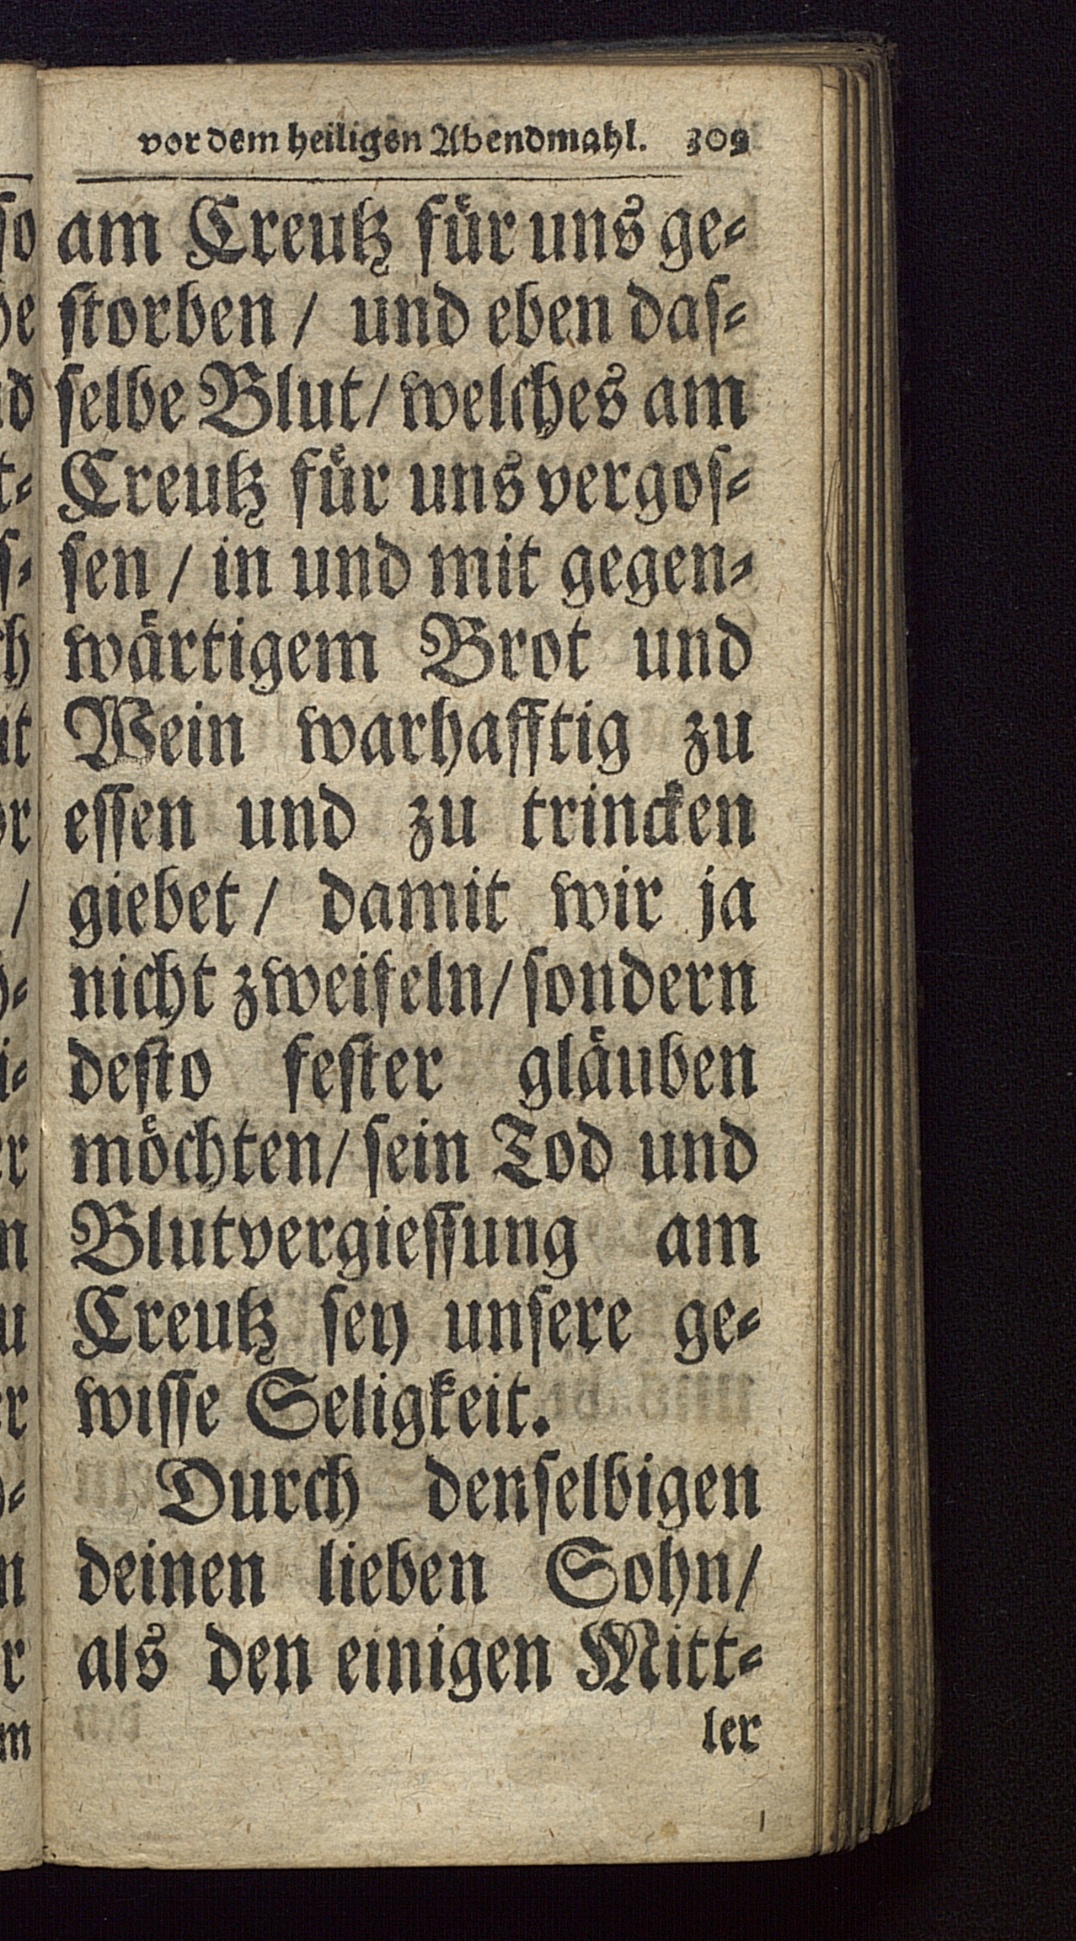 vor dem heiligen Abendmahl. 309
am Creutz fuͤr uns ge⸗
ſtorben / und eben daſ⸗
ſelbe Blut / welches am
Creutz fuͤr uns vergoſ⸗
ſen / in und mit gegen⸗
waͤrtigem Brot und
Wein warhafftig zu
eſſen und zu trincken
giebet / damit wir ja
nicht zweifeln / ſondern
deſto feſter glaͤuben
moͤchten / ſein Tod und
Blutvergieſſung am
Creutz ſey unſere ge⸗
wiſſe Seligkeit.
Durch denſelbigen
deinen lieben Sohn /
als den einigen Mitt⸗
ler